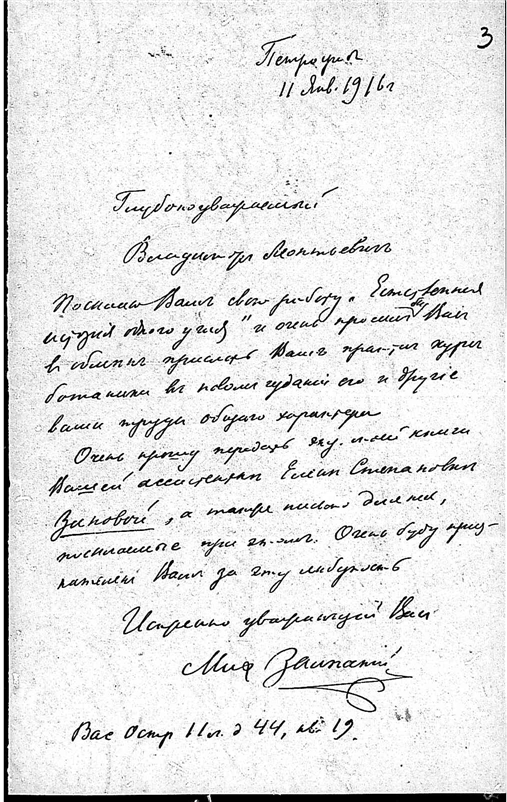 3
Петроград
11 Янв. 1916 г
Глубокоуважаемый
Владимир Леонтьевич
Посылаю Вам свою работу „Естественная
история одного " и очень просил бы Вас
в обмен прислать Ваш практич курс
ботаники в новом издании его и другие
ваши труды общаго характера
Очень прошу передать экз. моей книги
Вашей ассистентки Елене Степановне
Зиновой, а также письмо для нея,
посылаемые при этом. Очень буду приз-
нателен Вам за эту любезность
Искренно уважающий Вас
Мих
Вас Остр 11 л. д 44, кв. 19.